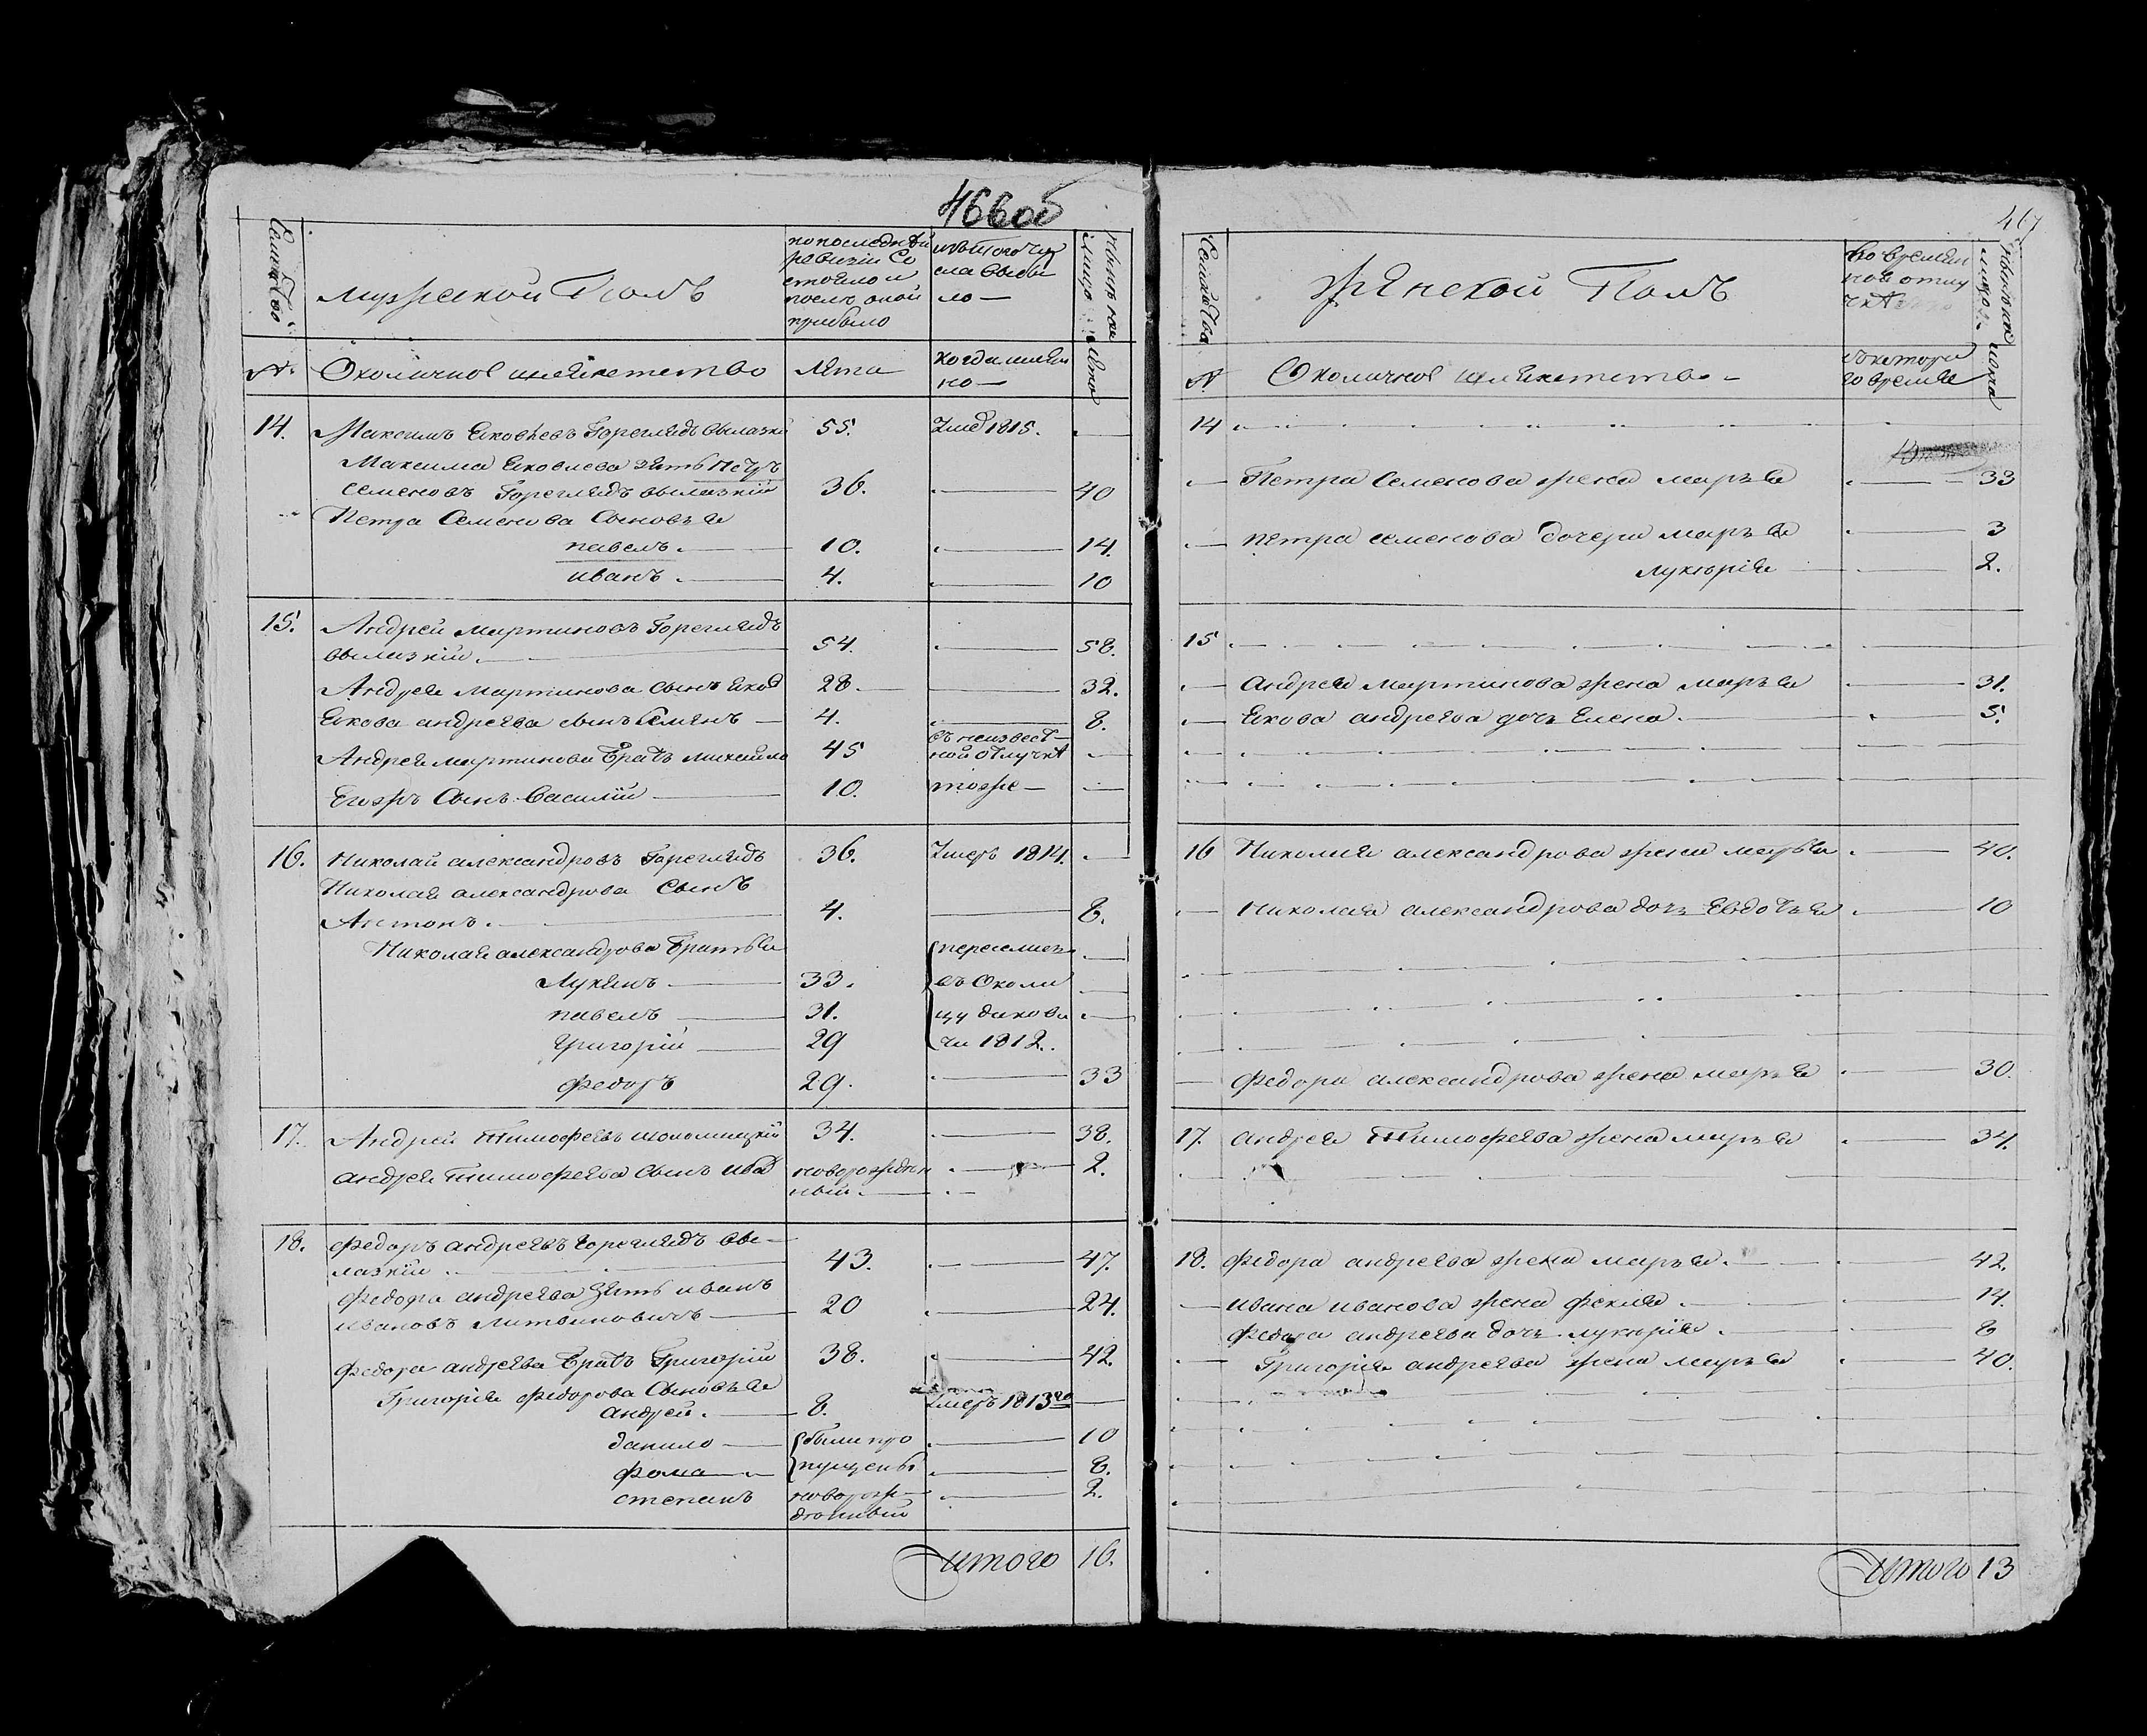 466об
Семейство
мужеской Полъ
по последней
ревизіи Со
стояло и
посль оной
прибыло
изъ того чис
ла выбы
ло —
Ныне на
лицо
№. Околичное шляхетство Лета когда имян
но — Лета
14. Максимъ Яковлевъ Гореглядъ Вылазкі 55. Умер 1815. —
Максима Яковлева зять Петръ
Семеновъ Гореглядъ вылазкій 36. — 40
Петра Семенова Сыновья
павелъ. — 10. — 14.
иванъ. — 4. — 10
15. Андрей мартиновъ Гореглядъ
вылазкій. — 54. — 58.
Андрея Мартинова сынъ Яков 28. — 32.
Якова андреева сынъ Семенъ — 4. — 8.
Андрея мартинова Братъ михайло 45 въ неизвест-
ной отлучке —
Егожъ Сынъ Василій — 10. тоже — —
16. Николай александровъ Гореглядъ 36. Умеръ 1814. —
Николая александрова Сынъ
Антонъ. — 4. — 8.
Николая александрова Братья
Лукянъ — 33.
павелъ — 31.
григорій — 29
переселись
въ Околи
цу дикови
чи 1812.
федоръ 29. — 33
17. Андрей Тимофеевъ шоломицкій 34. — 38.
андрея Тимофеева сынъ ива новорожден
ный. — 2.
18. федоръ андреевъ гореглядъ вы-
лазкій. — 43. — 47.
федора андреева Зять иванъ
ивановъ литвиновичъ — 20 — 24.
федора андреева Братъ Григорій 38. — 42.
Григорія федорова Сыновья
андрей. — 8. умеръ 1813го —
данило — были про — 10
фома — пущены — 8.
степанъ новорож-
донный — 2.
итого 16.
467
Семейства
женской Полъ
во времен
ной отлу
чке
Ныне на
лицо
№ Околичное шляхетство — съ котора
го время Лета
14 —
Петра Семенова жена марья — 33
петра семенова дочери марья — 3
лукерія — 2.
15 —
андрея мартинова жена марья — 31.
Якова андреева дочь Елена. — 5.
16 Николая александрова жена марья. — 40.
Николая александрова дочь Евдотья. — 10
федора александрова жена марья — 30.
17. андрея Тимофеева жена марья — 34.
18. федора андреева жена марья. — 42.
ивана иванова жена фекля. — 14.
федора андреева дочь лукерія. — 8
Григорія андреева жена марья — 40.
итого 13